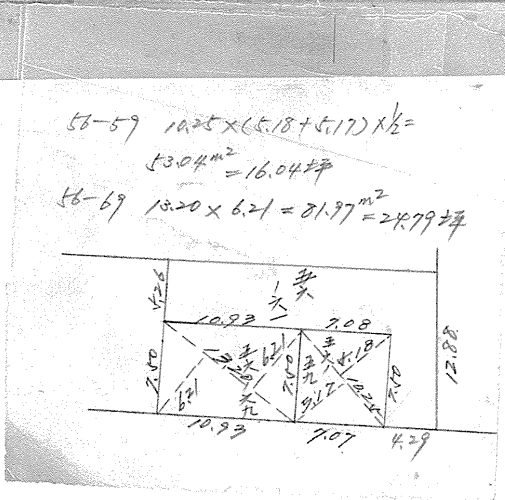 56-59 10.25×(5.18+5.17)×1/2=
53.04m²=16.04坪
56-69 13.20×6.21=81.97m²=24.79坪
五六
一六一
10.93
7.08
7.50
13.20
6.21
五六
六九
6.21
7.50
五六
五九
5.18
5.17
10.25
7.50
12.88
10.93
7.07
4.29